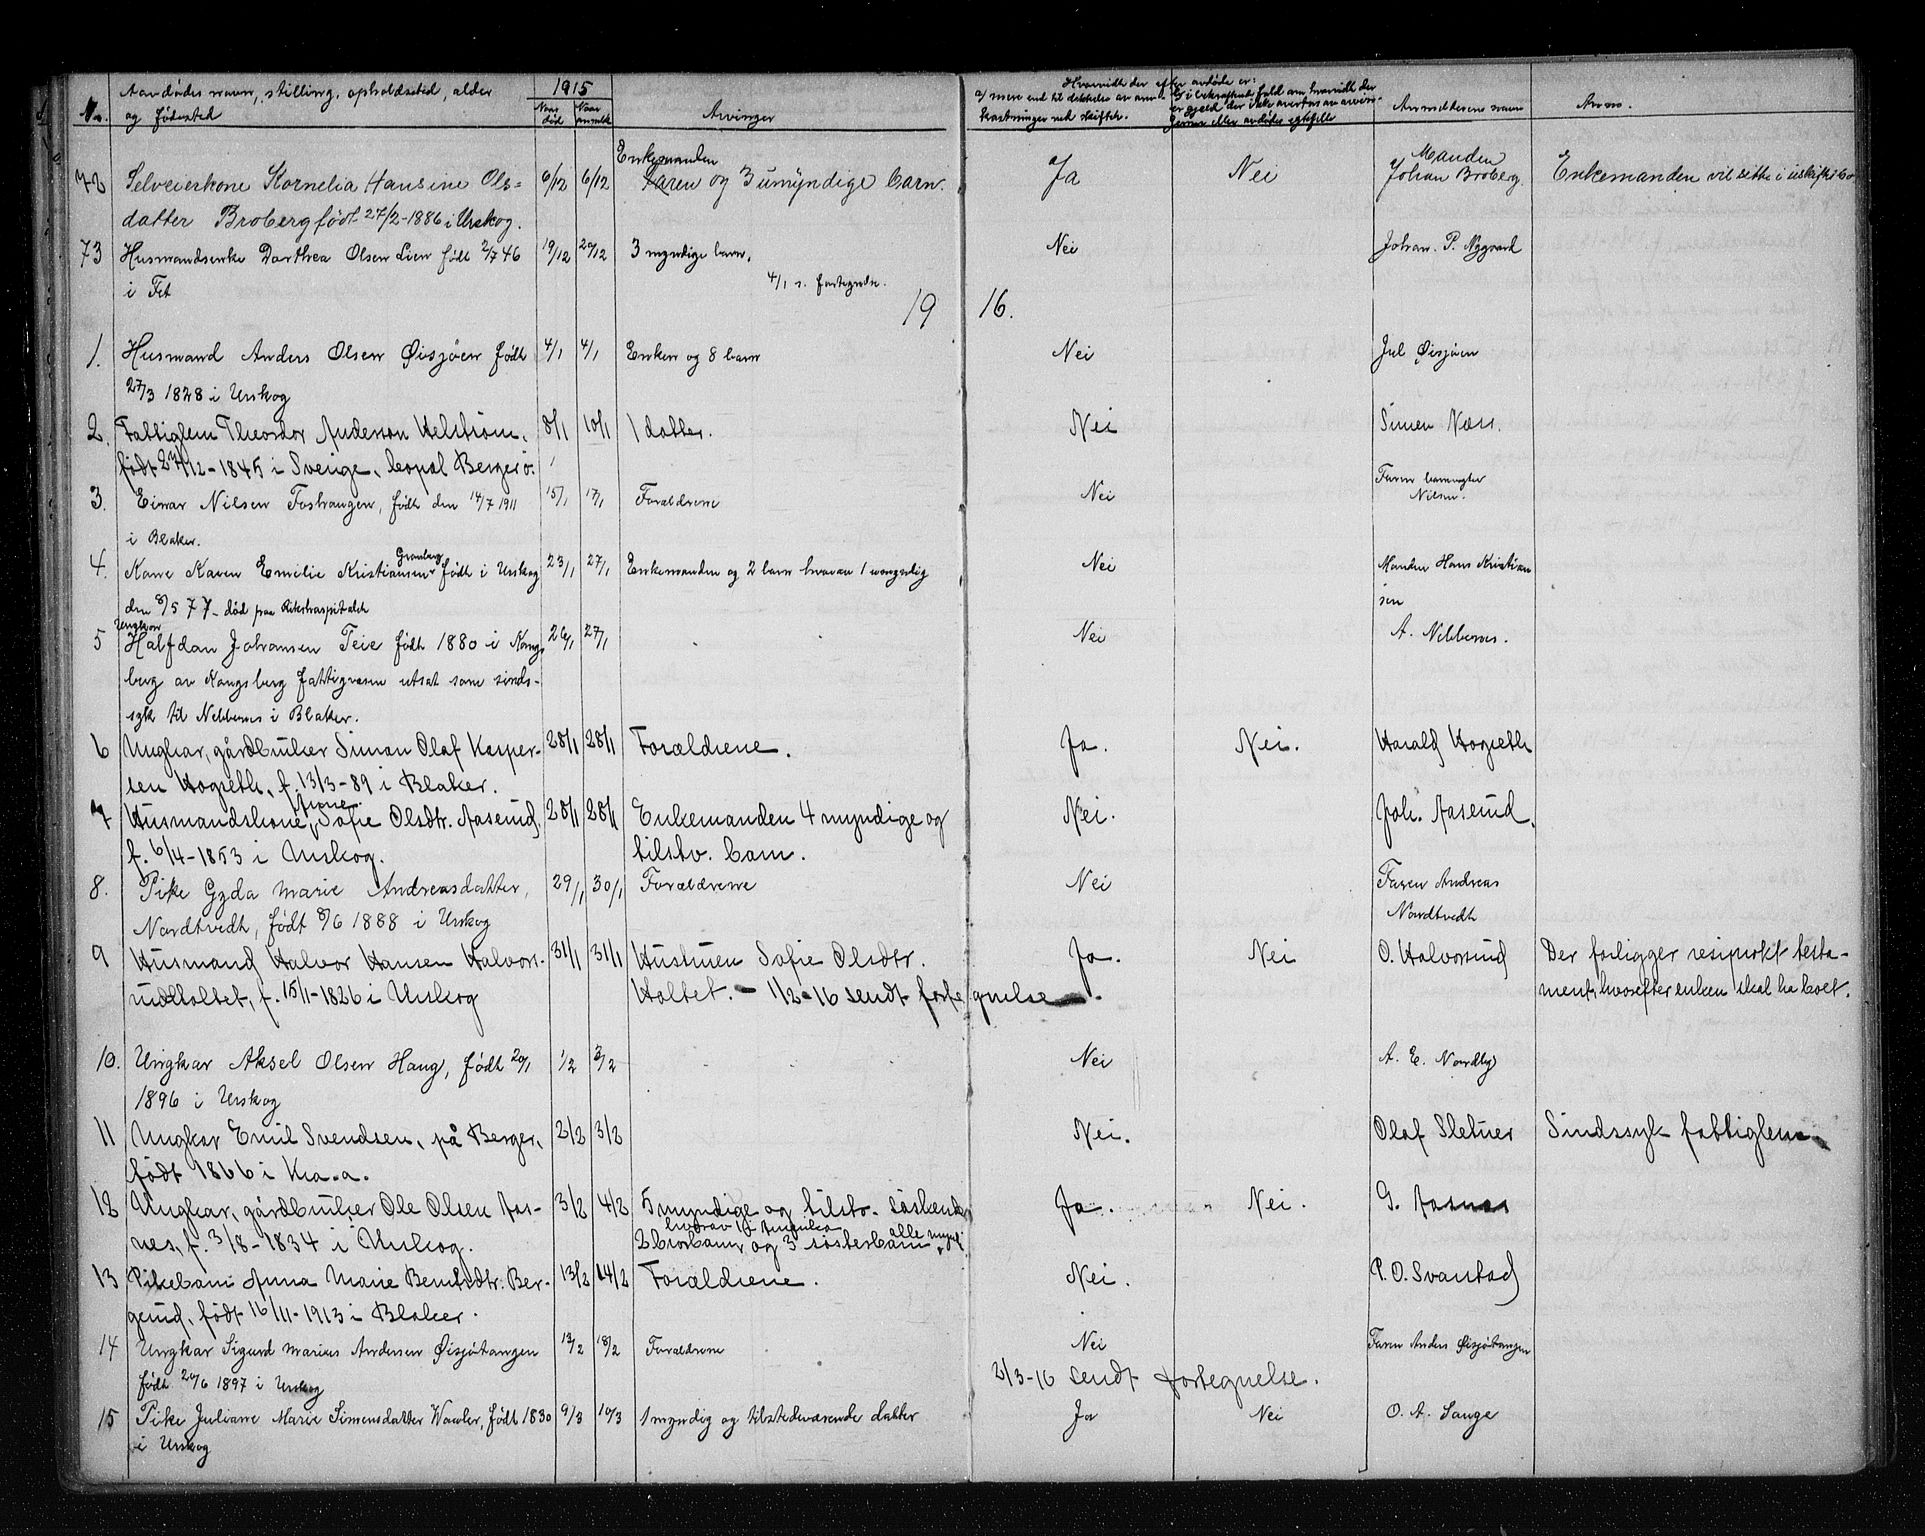 No. Avdødes navn, stilling, opholdssted, alder 1915 Hvorvidt der efter avdøde er:
og fødested Naar død Naar anmeldt Arvinger a) mere end til dekkelse av omkostninger ved skiftet. Anmelderens navn Anm.
72 Selveierkone Kornelia Hansine Ols= 6/12 6/12 Enkemanden og 3 umyndige barn. Ja Nei Manden Johan Broberg. Enkemanden vil sitte i uskiftet bo
datter Broberg født 27/2-1886 i Urskog.
73 Husmandsenke Dorthea Olsen Lien født 2/7 46 19/12 20/12 3 myndige barn. Nei Johan. P. Nygaard
i Fet 4/1 s. fortegnelse.
1916.
1. Husmand Anders Olsen Øisjøen født 4/1 4/1 Enken og 8 barn Nei Jul Øisjøen
27/3 1828 i Urskog
2. Fattiglem Theodor Anderson Helstrøm, 8/1 10/1 1 datter. Nei Simen Næss.
født 27/12-1845 i Sverige, bopal Berger ø.
3. Einar Nilsen Fostrangen, født den 14/7 1911 15/1 17/1 Forældrene Nei Faren
Nilsen.
i Blaker.
4. Kone Karen Emilie Kristiansen Granberg født i Urskog 23/1 27/1 Enkemanden og 2 barn hvorav 1 umyndig Nei Manden Hans Kristian
sen
den 8/5 77- død paa Rikshospitalet
5 Ungkar Halfdan Johansen Teie født 1880 i Kongs 26/1 27/1 Nei A. Nebbenes.
berg av Kongsberg fattigvæsen utsat som sinds-
syk til Nebbenes i Blaker.
6 Ungkar, gårdbruker Simon Olaf Kasper- 28/1 28/1 Forældrene. Ja. Nei. Harald Hogseth
sen Hogseth, f. 13/3-89 i Blaker.
7 Husmandskone, Sofie Olsdtr. Aaserud, 28/1 28/1 Enkemanden 4 myndige og Nei. Joh. Aaserud.
f. 6/4-1853 i Urskog. tilstv. barn.
8. Pike Gyda Marie Andreasdatter, 29/1 30/1 Forældrene Nei Faren Andreas
Nordtvedt, født 8/6 1888 i Urskog Nordtvedt
9 Husmand Halvor Hansen Halvors- 31/1 31/1 Hustruen Sofie Olsdtr. Ja. Nei O. Halvorsrud Der forligger resiprokt testa-
rudholtet, f. 15/1-1826 i Urskog Holtet. - 1/2-16 sendt fortegnelse. ment, hvorefter enken skal ha boet.
10. Ungkar Aksel Olsen Haug, født 20/1 1/2 3/2 Nei A. E. Nordby
1896 i Urskog
11 Ungkar Emil Svendsen, på Berger, 2/2 3/2 Nei. Olaf Sletner Sindssyk fattiglem.
født 1866 i Kra.a.
12 Ungkar, gårdbruker Ole Olsen Aas- 3/2 4/2 5 myndige og tilstv. søskende Ja. Nei. G. Aasnes
nes, f. 3/8-1834 i Urskog. 2 brorbarn, hvorav 1 i Amerika og 3 søsterbarn alle mynd.
13 Pikebarn Anna Marie Berntsdtr. Ber- 13/2 14/2 Forældrene. Nei. P. O. Svarstad
gerud, født 16/11-1913 i Blaker.
14 Ungkar Sigurd Marius Andersen Øisjøtangen 13/2 18/2 Forældrene Nei Faren Anders Øisjøtangen
født 20/6 1897 i Urskog 2/3-16 sendt fortegnelse.
15 Pike Juliane Marie Simensdatter Waaler, født 1830 9/3 10/3 1 myndig og tilstedeværende datter Ja Nei O. A. Sauge
i Urskog